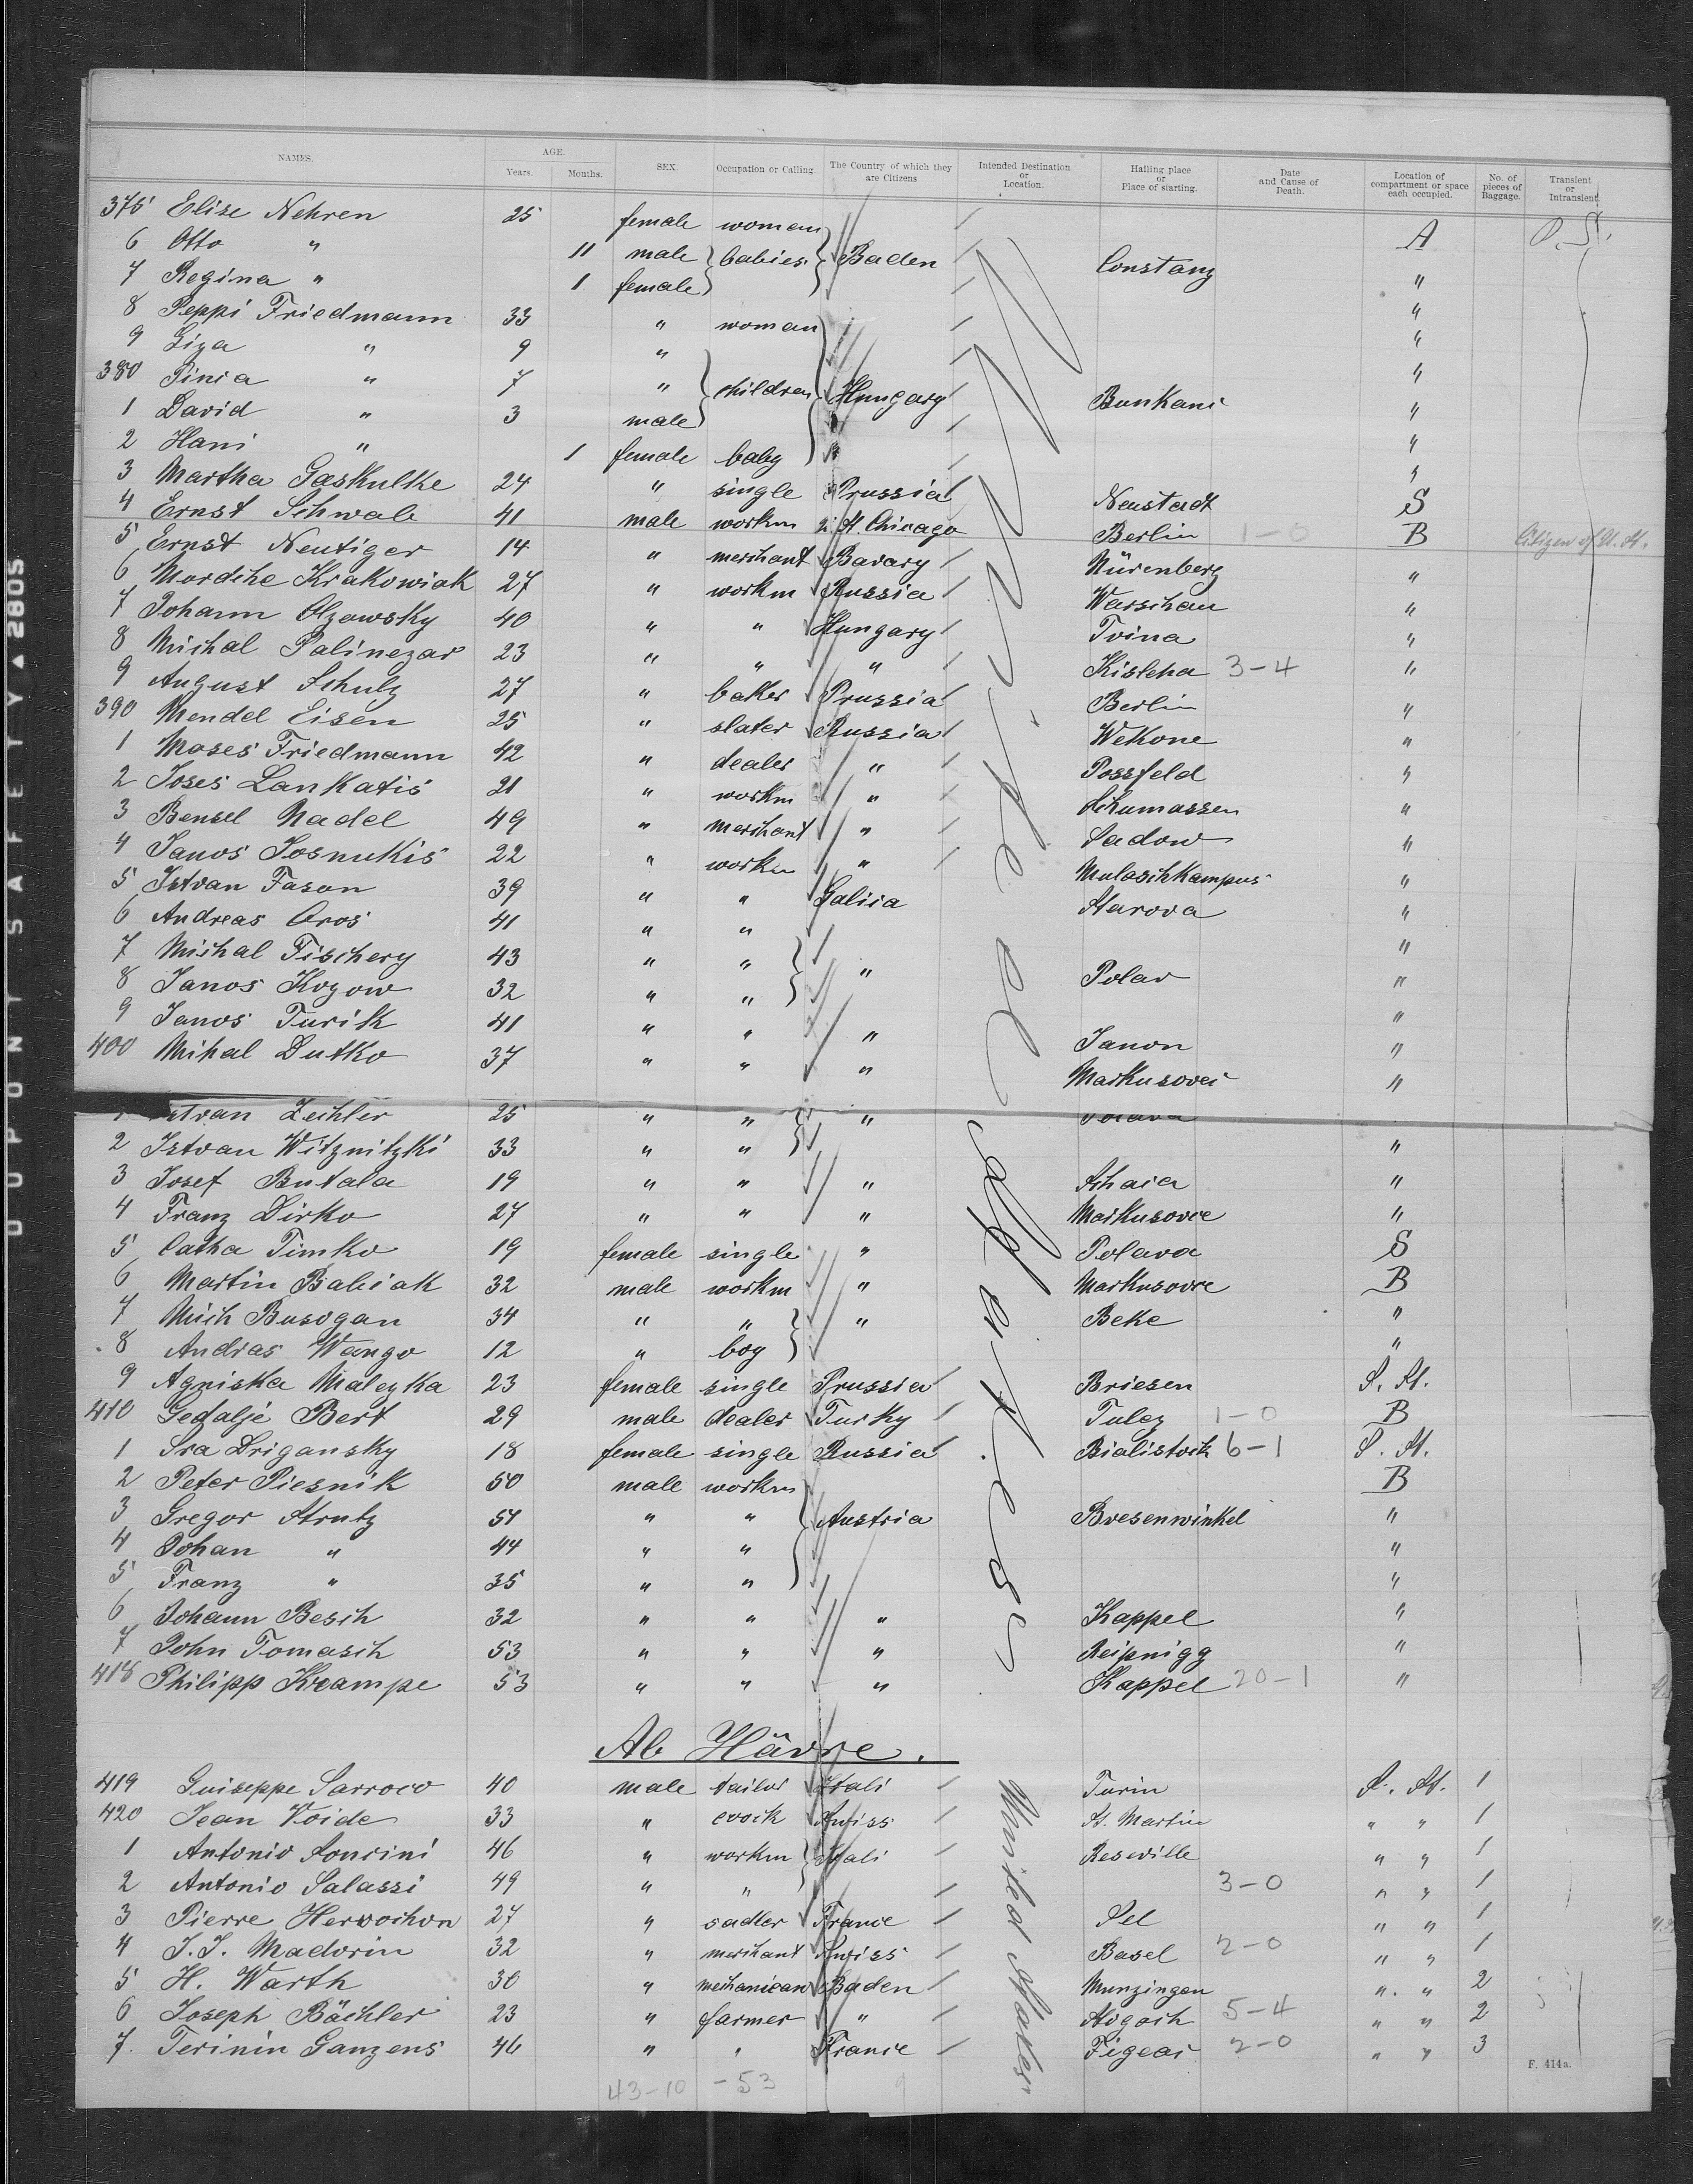 NAMES. AGE. Years. Months. SEX. Occupation or Calling. The Country of which they are Citizens Intended Destination or Location. Hailing place or Place of starting. Date and Cause of Death. Location of compartment or space each occupied. No. of pieces of Baggage. Transient or Intransient.
375 Elise Nehren 25 female woman A
6 Otto " 11 male babies Baden Constanz "
7 Regina " 1 female "
8 Peppi Friedmann 33 " woman "
9 Liza " 9 " "
380 Pinia " 7 " children Hungary Bunkani "
1 David " 3 male "
2 Hani " 1 female baby "
3 Martha Gaskulke 24 " single Prussia Neustadt S
4 Ernst Schwab 41 male workm Chicago Berlin 1-0 B Citizen of U. St.
5 Ernst Neutiger 14 " merchant Bavary Nürenberg "
6 Mordche Krakowiak 27 " workm Russia Warschau "
7 Johann Olzowsky 40 " " Hungary Tvina "
8 Michal Palinezar 23 " " " Kislcha 3-4 "
9 August Schulz 27 " baker Prussia Berlin "
390 Mendel Eisen 25 " slater Russia Wekone "
1 Moses Friedmann 42 " dealer " Possfeld "
2 Joses Lankatis 21 " workm " Schumassen "
3 Bensel Nadel 49 " merchant " Sadow "
4 Janos Sosnukis 22 " workm " Mulaschkampus "
5 Istvan Fason 39 " " Galicia Starova "
6 Andreas Oros 41 " " "
7 Michal Tischery 43 " " " Polav "
8 Janos Kozow 32 " " "
9 Janos Turik 41 " " " Janon "
400 Mihal Dutko 37 " " " Markusovci "
Zeihler 25 " " "
2 Istvan Witznitzki 33 " " "
3 Josef Butala 19 " " " Schaia "
4 Franz Dirko 27 " " " Markusovce "
5 Catha Timko 19 female single " Polava S
6 Martin Babiak 32 male workm " Markusovce B
7 Mich Busogan 34 " " " Beke "
8 Andras Wango 12 " boy "
9 Agniska Maleyka 23 female single Prussia Briesen S. St.
410 Gedalje Bert 29 male dealer Turky Tulez 1-0 B
1 Sra Drigansky 18 female single Russia Bialistock 6-1 S. St.
2 Peter Piesnik 50 male workm B
3 Gregor Strutz 51 " " Austria Bresenwinkel "
4 Johan " 44 " " "
5 Franz " 35 " " "
6 Johann Besch 32 " " " Kappel "
7 John Tomasch 53 " " " Reipnigg "
418 Philipp Krampe 53 " " " Kappel 20-1 "
United States
Ab Hâvre.
419 Guiseppe Sarroco 40 male tailor Itali Turin S. St. 1
420 Jean Voide 33 " Swiss St. Martin " " 1
1 Antonio Sonrini 46 " workm Itali Reseville " " 1
2 Antonio Salassi 49 " " 3-0 " " 1
3 Pierre Hervochon 27 " sadler France Sel " " 1
4 J. J. Madorin 32 " merchant Swiss Basel 2-0 " " 1
5 H. Warth 30 " mechanican Baden Munzingen " " 2
6 Joseph Bächler 23 " farmer " 5-4 " " 2
7. Terinin Ganzens 46 " " France Figeac 2-0 " " 3
United States
43-10 -53
F. 414a.
DUPONT SAFETY ▲ 2805